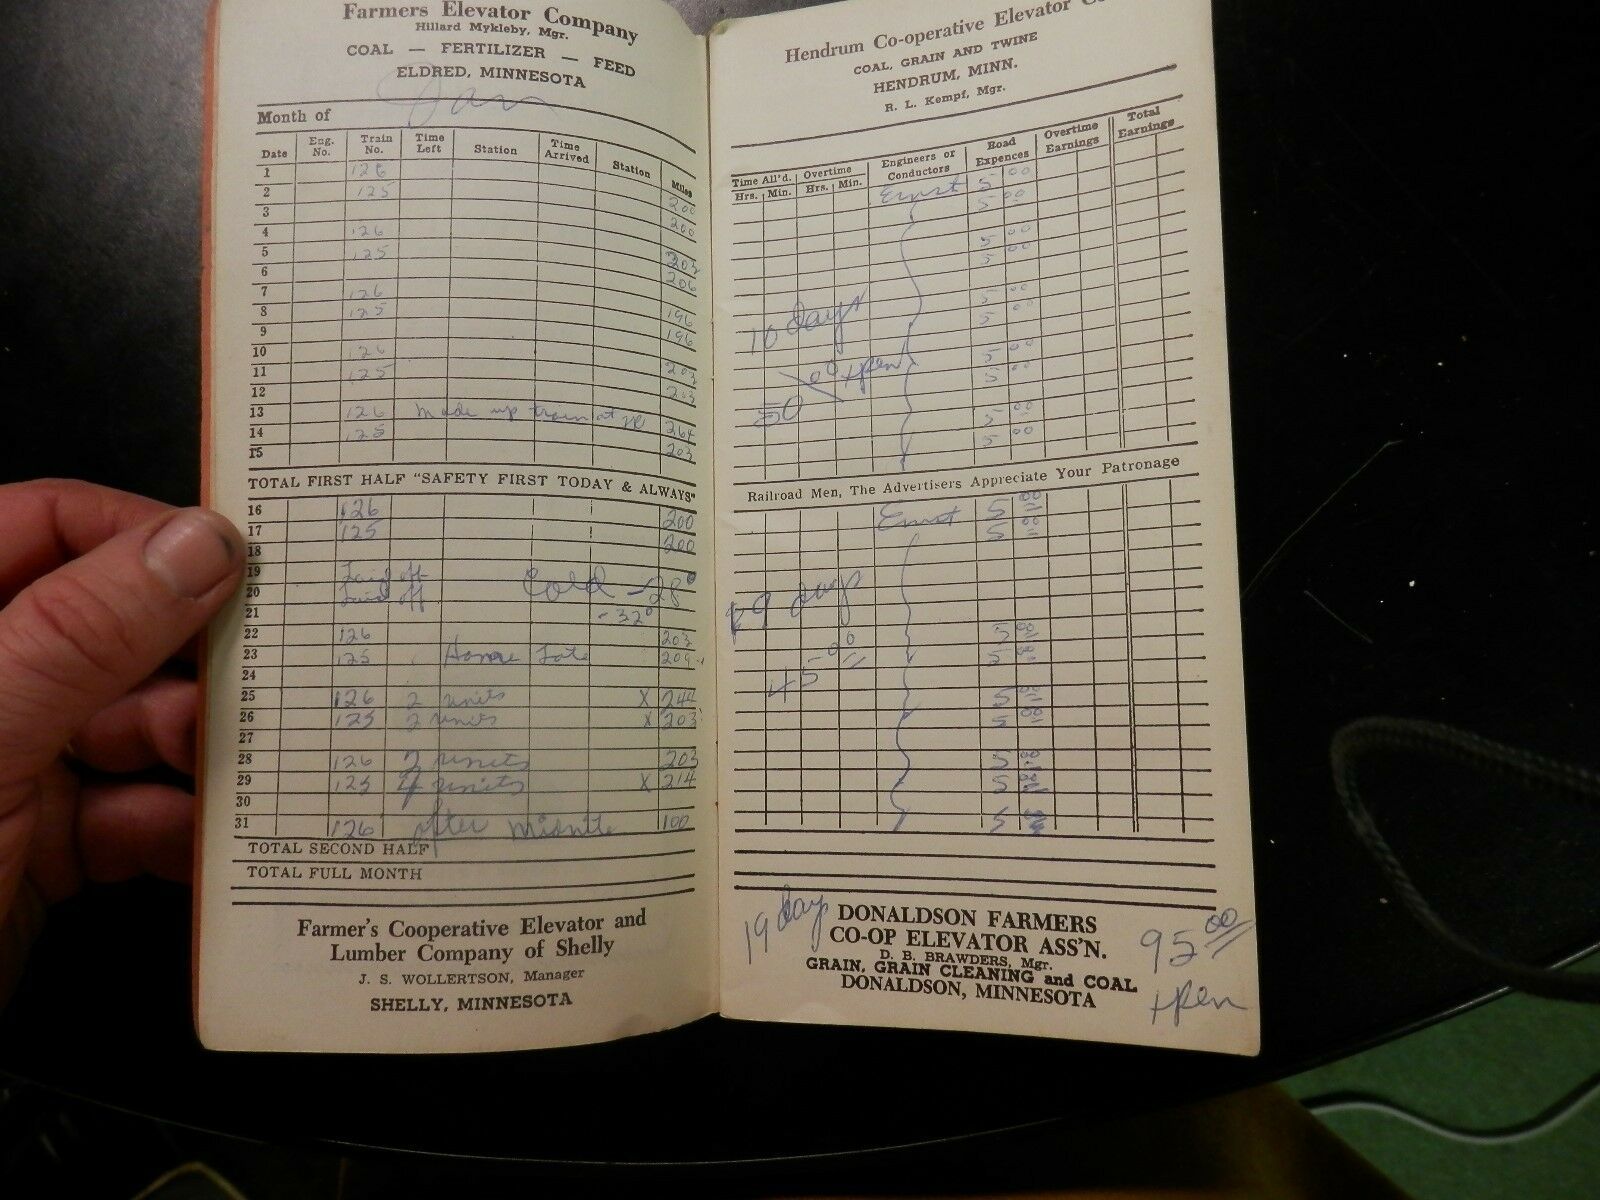 Farmers Elevator Company
Hillard Mykleby, Mgr.
COAL — FERTILIZER — FEED
ELDRED, MINNESOTA
Month of Jan
Date Eng. No. Train No. Time Left Station Time Arrived Station Miles
1 126 200
2 125 200
3
4 126 203
5 125 206
6
7 126 196
8 125 196
9
10 126 203
11 125 203
12
13 126 Made up train at 264
14 125 203
15
TOTAL FIRST HALF "SAFETY FIRST TODAY & ALWAYS"
16 126 200
17 125 200
18
19 Laid off Cold -28°
20 Laid off
21 -32°
22 126 203
23 125 Late 209
24
25 126 2 units X 244
26 125 2 units X 203
27
28 126 2 units 203
29 125 units X 214
30
31 126 after Midnite 100
TOTAL SECOND HALF
TOTAL FULL MONTH
Farmer's Cooperative Elevator and
Lumber Company of Shelly
J. S. WOLLERTSON, Manager
SHELLY, MINNESOTA
Hendrum Co-operative Elevator
COAL, GRAIN AND TWINE
HENDRUM, MINN.
R. L. Kempf, Mgr.
Time All'd. Hrs. Min. Overtime Hrs. Min. Engineers or Conductors Road Expences Overtime Earnings Total Earnings
Ernst 5 00
5 00
5 00
5 00
5 00
10 days 5 00
5 00
50 00 5 00
5 00
5 00
Railroad Men, The Advertisers Appreciate Your Patronage
Ernst 5 00
5 00
9 days
5 00
45 00 5 00
5 00
5 00
5 00
5 00
5
19 days
DONALDSON FARMERS
CO-OP ELEVATOR ASS'N.
D. B. BRAWDERS, Mgr.
GRAIN, GRAIN CLEANING and COAL
DONALDSON, MINNESOTA
95 00